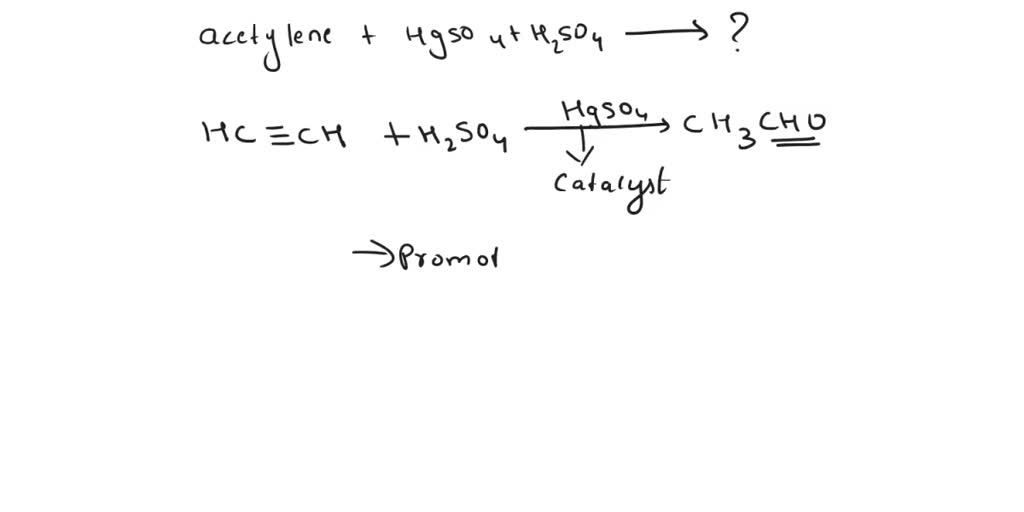 acetylene + HgSO4 + H2SO4 ⟶ ?
HgSO4
HC≡CH + H2SO4 ⟶ CH3CHO
Catalyst
→ Promot